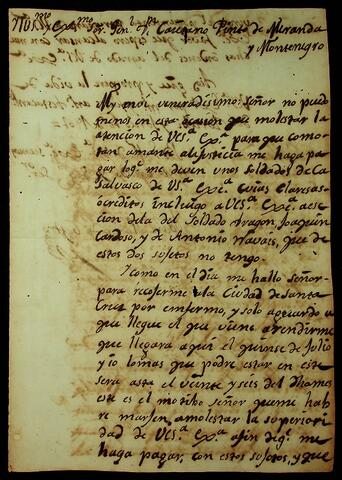 Yllmo. y Exmo. Sor. Dn. Caetano Pinto de Miranda
y Montenegro
My mui veneradisimo señor no puedo
menos en esta ocasion que molestar la
atencion de VEsa. Exa. para que como
tan amante a la justicia me haga pa
gar lo que me deven unos soldados de Ca
salvasco de VSa. Exca. cuias
creditos incluigo a VEsa. Exca. a es
cion de la del Soldado Aragon, Joaquin
Cardoso, y de Antonio Navais, que de
estos dos sujetos no tengo.
Y como en el dia me hallo señor
para recoserme a la Ciudad de Santa
Cruz por emfermo, y solo aguardo a
que llegue el que viene a rendirme
que llegara aqui el quinse de Julio
y io lo mas que podre estar en este
sera asta el veinte y seis del dho mes
este es el motibo señor que me hab
re a molestar la superiori
dad de VEsa. Exa. a fin de que me
haga pagar, con estos sujetos, y que